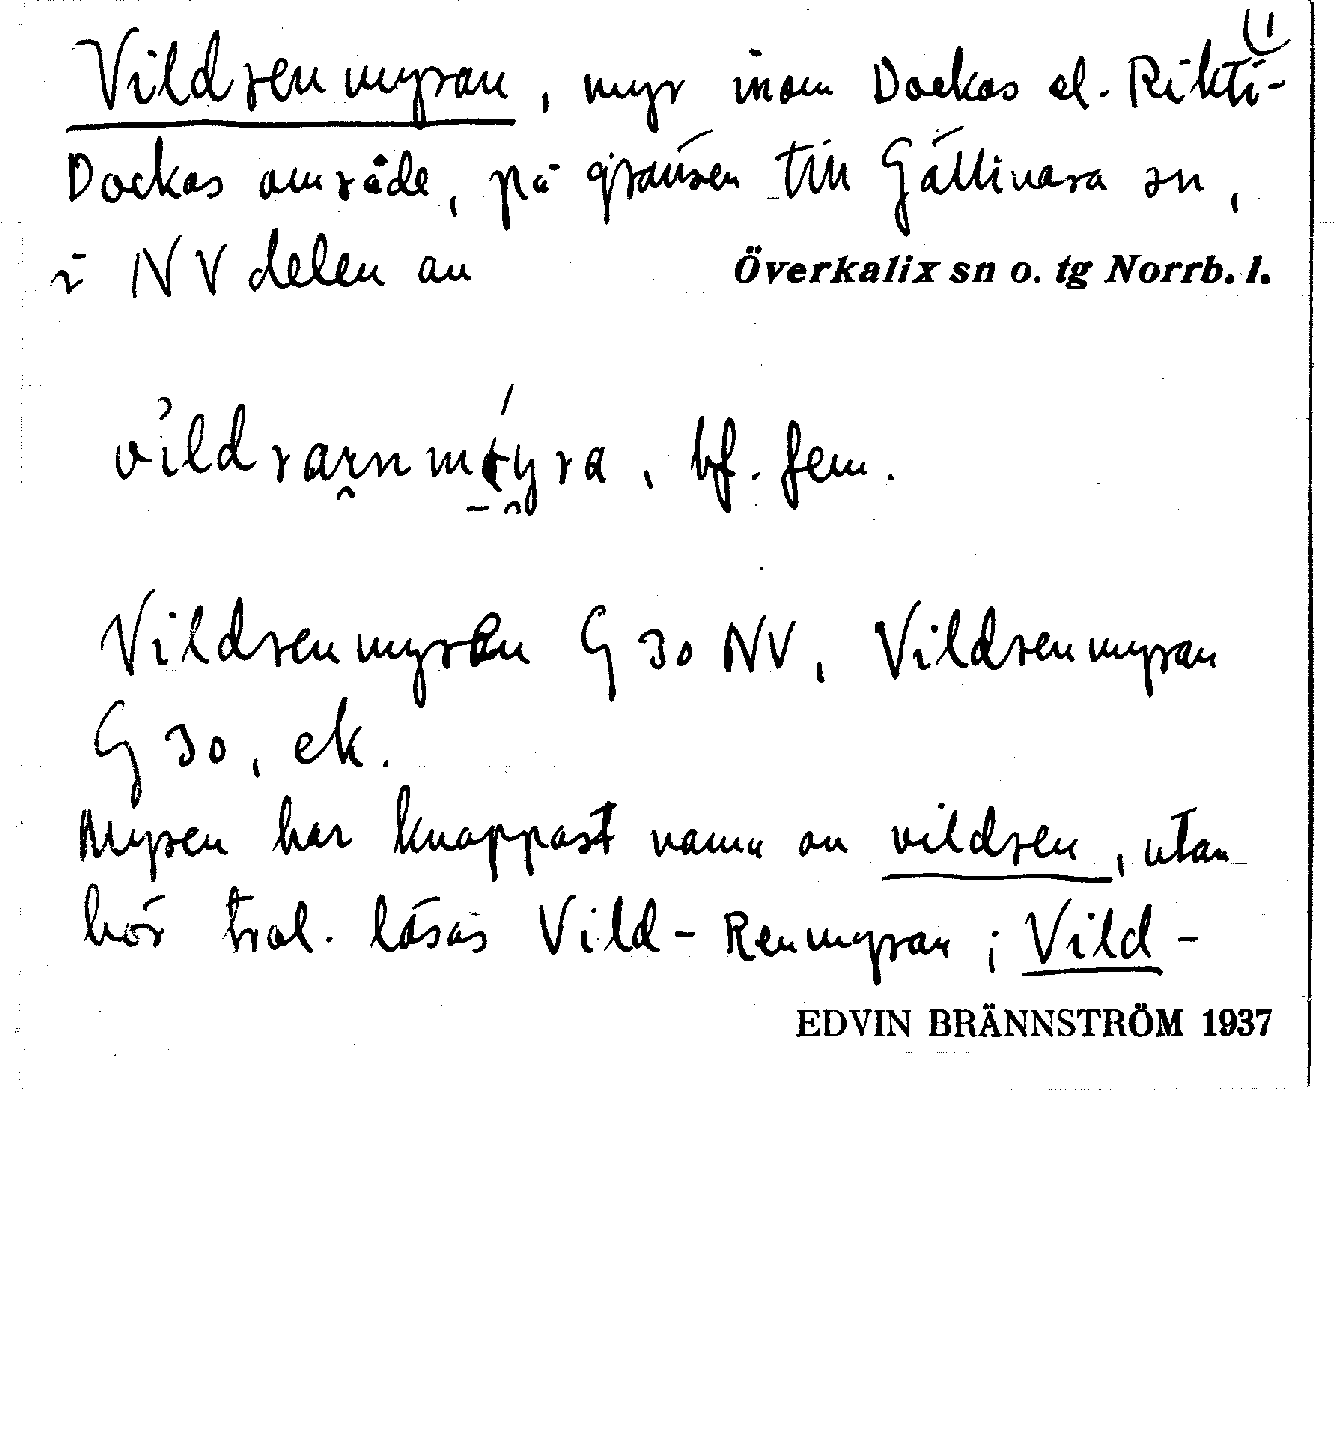 Vildrenmyran, myr inom Dockas el. Rikti-
Dockas område, på gränsen till Gällivara sn,
i NV delen av Överkalix sn o. tg Norrb. l.
bf. fem.
Vildrenmyren G 30 NV, Vildrenmyran
G 30, ek.
Myren har knappast namn av vildren, utan
bör trol. läsas Vild-Renmyran; Vild-
EDVIN BRÄNNSTRÖM 1937